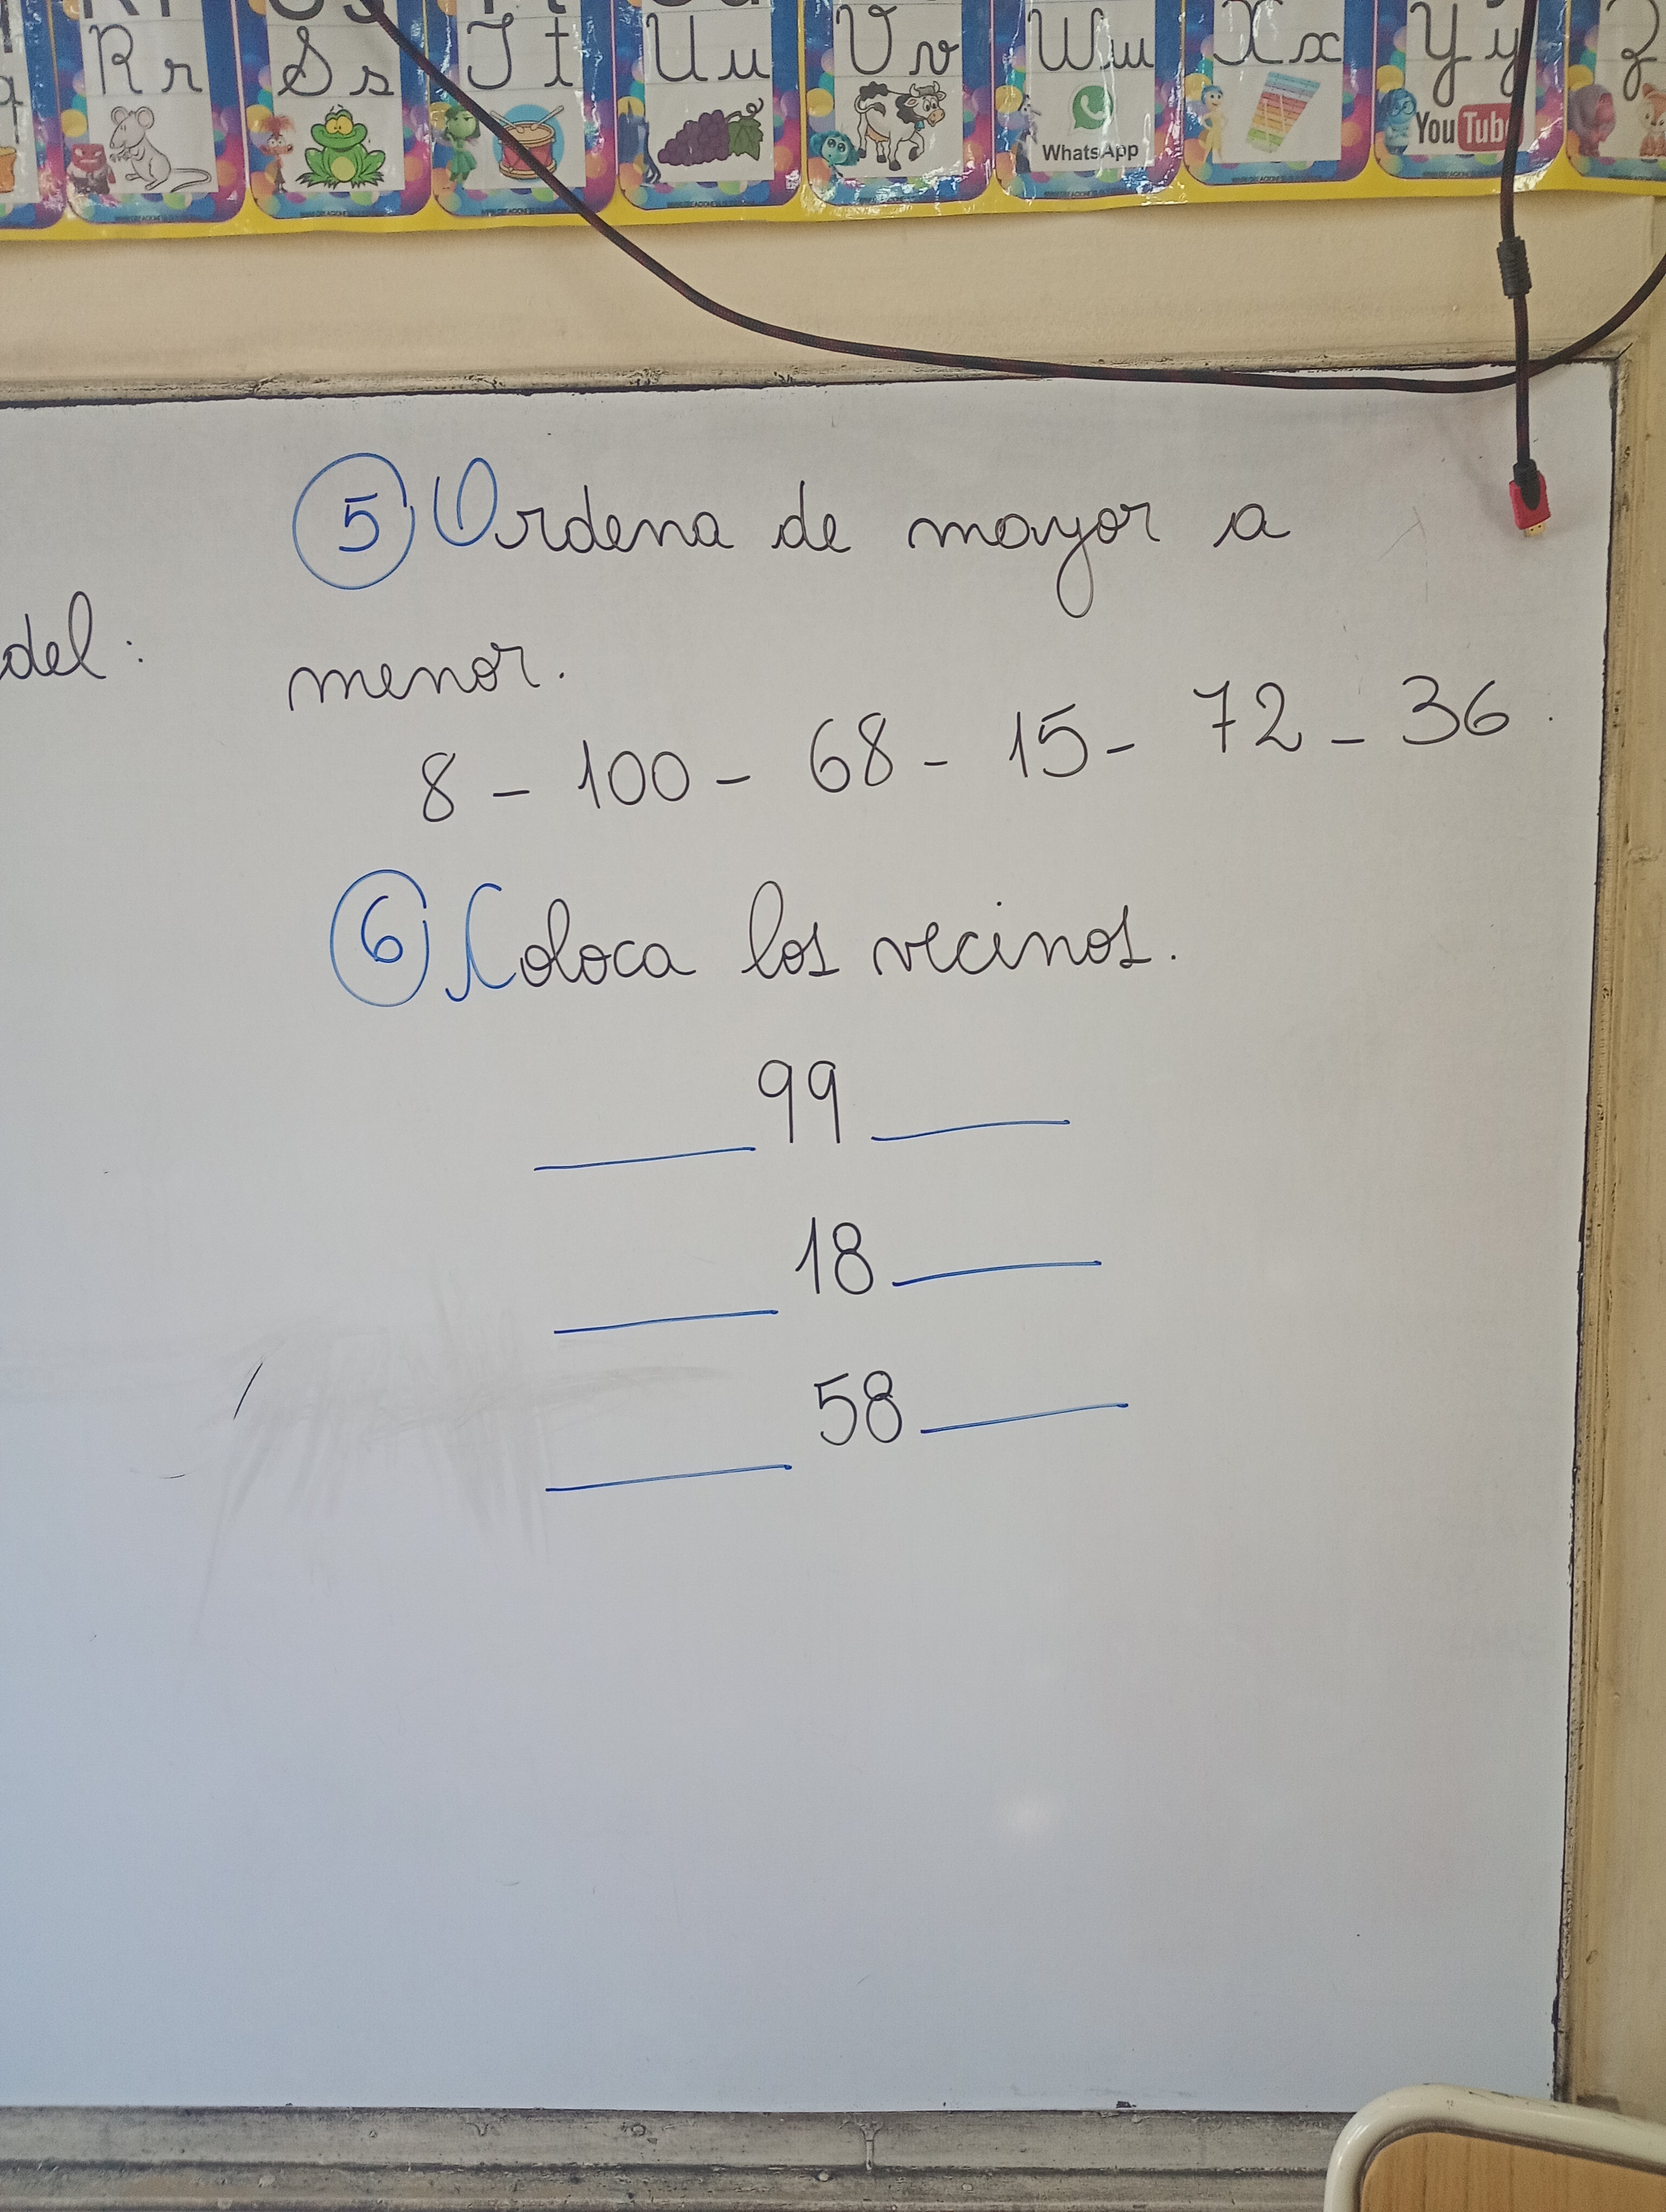 Rr Ss Tt Uu Vv Ww Xx Yy
WhatsApp
YouTube
5 Ordena de mayor a
menor.
del:
8 - 100 - 68 - 15 - 72 - 36.
6 Coloca los vecinos.
____ 99 ____
____ 18 ____
____ 58 ____